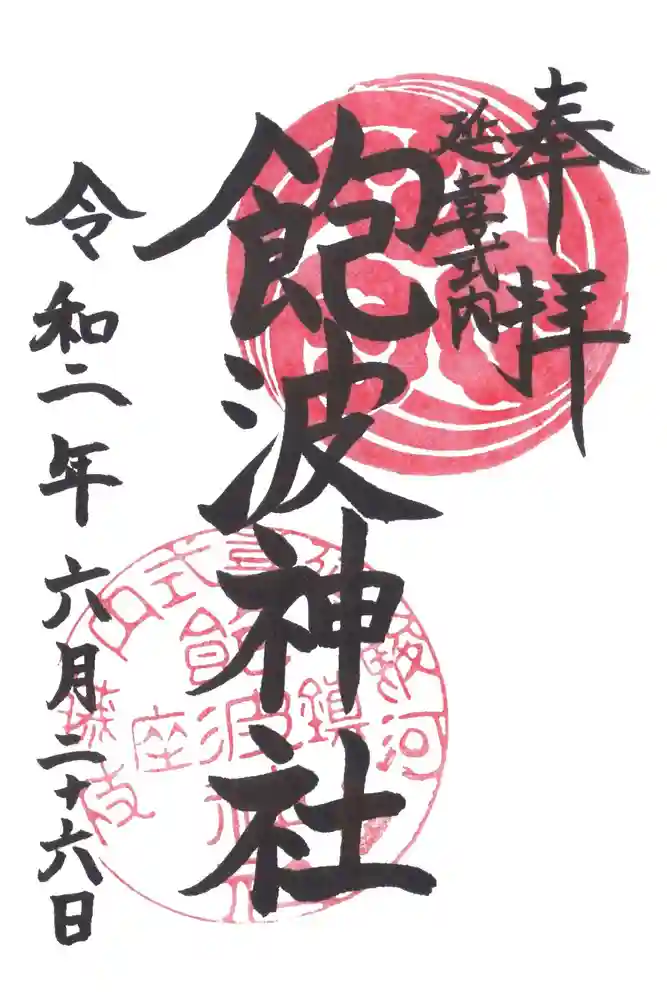 奉拝
延喜式内
飽波神社
令和二年六月二十六日
駿河
式内
鎮座
飽波